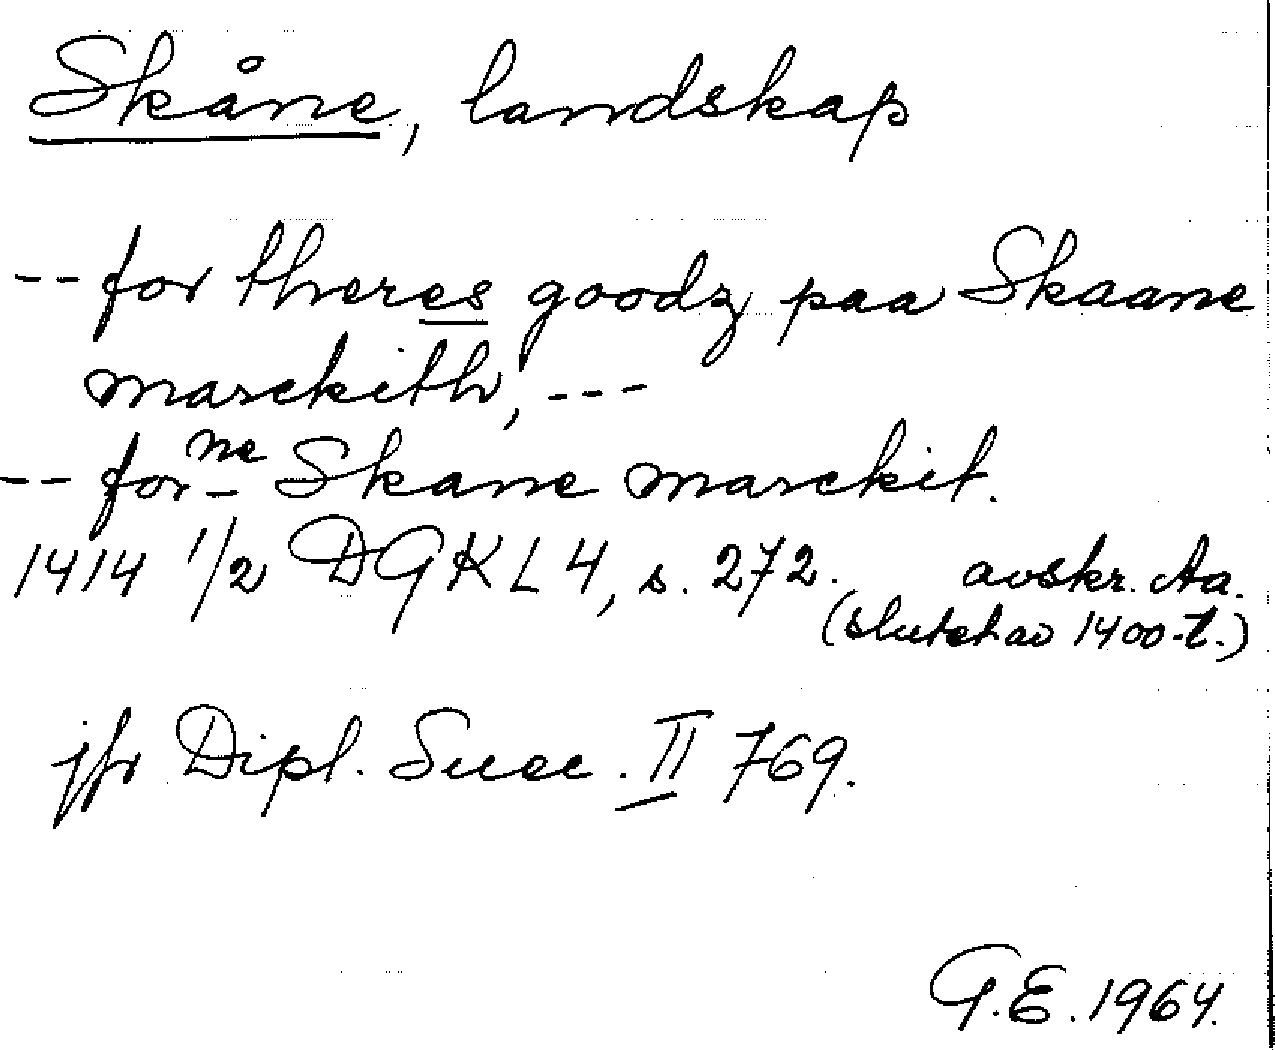 Skåne, landskap
-- for theres goodz paa Skaane
marckith, ---
-- forne Skane marckit.
1414 1/2 DGKL 4, s. 272. avskr. Aa.
(slutet av 1400-t.)
jfr Dipl. Suec. II 769.
G.E. 1964.